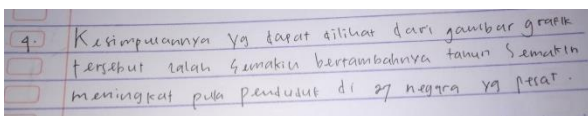 4. Kesimpulannya yg dapat dilihat dari gambar grafik
tersebut ialah semakin bertambahnya tahun semakin
meningkat pula penduduk di 27 negara yg pesat.